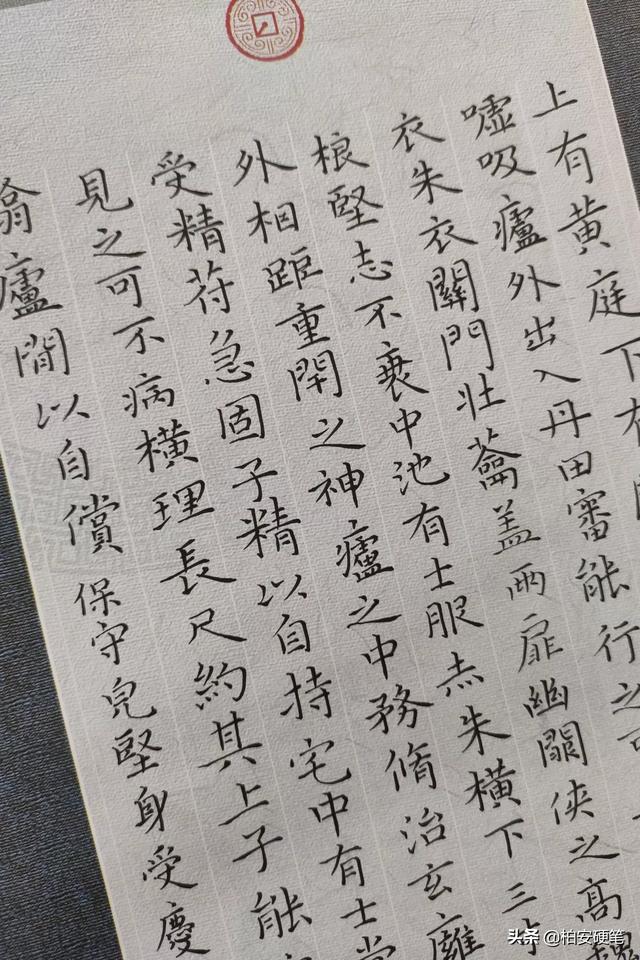 上有黄庭下有
嘘吸廬外出入丹田審能行之可
衣朱衣關門壯蘥盖兩扉幽關侠之高巍
根堅志不衰中池有士服赤朱橫下三寸
外相距重閇之神廬之中務脩治玄廱
受精苻急固子精以自持宅中有士常
見之可不病橫理長尺約其上子能
翕廬間以自償保守皃堅身受慶
头条 @柏安硬笔